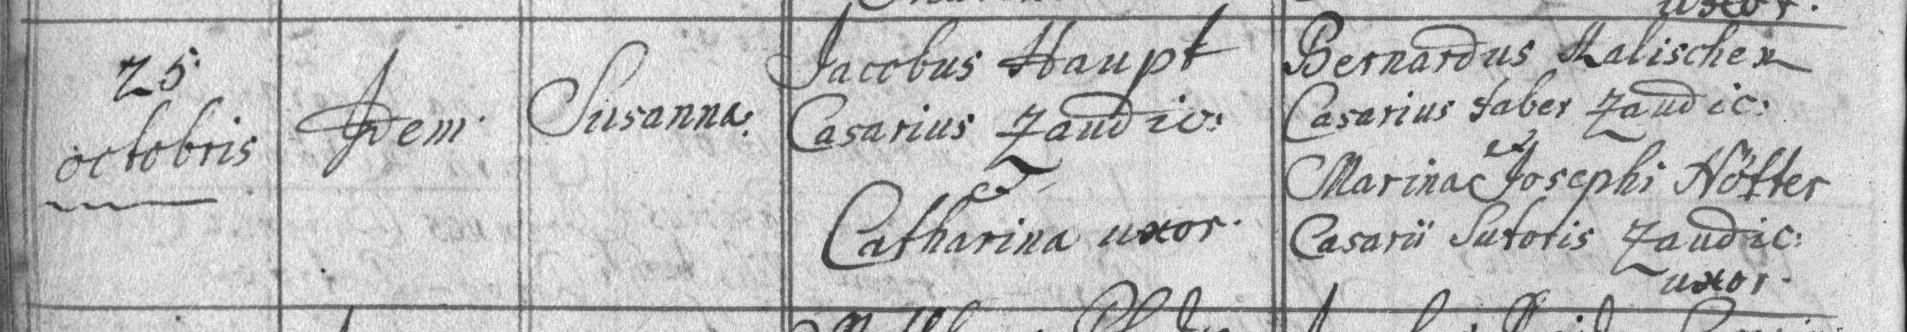 uxor.
25
octobris
Idem
Susanna.
Jacobus Haupt
Casarius Zaudic:
et
Catharina uxor.
Bernardus Kalischer
Casarius faber Zaudic:
et
Marina Josephi Höfter
Casarii Sutoris Zaudic:
uxor.